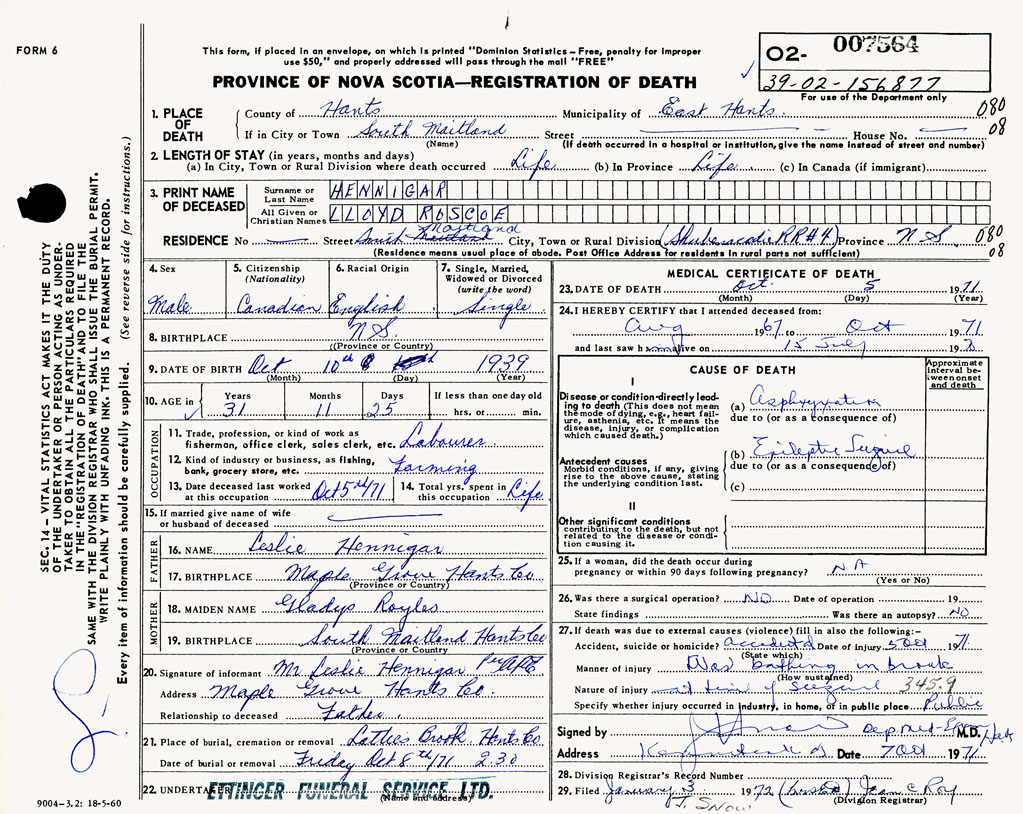 FORM 6
This form, if placed in an envelope, on which is printed "Dominion Statistics — Free, penalty for improper
use $50," and properly addressed will pass through the mail "FREE"
PROVINCE OF NOVA SCOTIA—REGISTRATION OF DEATH
02- 007564
39-02-156877
For use of the Department only
1. PLACE OF DEATH
County of Hants Municipality of East Hants. 080
If in City or Town South Maitland Street House No. 08
(Name) (If death occurred in a hospital or institution, give the name instead of street and number)
2. LENGTH OF STAY (in years, months and days)
(a) In City, Town or Rural Division where death occurred Life (b) In Province Life (c) In Canada (if immigrant)
3. PRINT NAME OF DECEASED
Surname or Last Name HENNIGAR
All Given or Christian Names LLOYD ROSCOE
RESIDENCE No Street South Maitland City, Town or Rural Division (Shubenacadie RR#4) Province N S 080
(Residence means usual place of abode. Post Office Address for residents in rural parts not sufficient) 08
4. Sex Male
5. Citizenship (Nationality) Canadian
6. Racial Origin English
7. Single, Married, Widowed or Divorced (write the word) Single
8. BIRTHPLACE N S.
(Province or Country)
9. DATE OF BIRTH Oct 10th 1939
(Month) (Day) (Year)
10. AGE in Years Months Days If less than one day old
31 11 25 hrs. or min.
OCCUPATION
11. Trade, profession, or kind of work as
fisherman, office clerk, sales clerk, etc. Labourer
12. Kind of industry or business, as fishing,
bank, grocery store, etc. Farming
13. Date deceased last worked at this occupation Oct 5th/71
14. Total yrs. spent in this occupation Life
15. If married give name of wife
or husband of deceased
FATHER
16. NAME Leslie Hennigar
17. BIRTHPLACE Maple Grove Hants Co
(Province or Country)
MOTHER
18. MAIDEN NAME Gladys Royles
19. BIRTHPLACE South Maitland Hants Co
(Province or Country
20. Signature of informant Mr Leslie Hennigar Per APE
Address Maple Grove Hants Co.
Relationship to deceased Father.
21. Place of burial, cremation or removal Hants Co
Date of burial or removal Friday Oct 8th/71 2.30
22. UNDERTAKER ETTINGER FUNERAL SERVICE LTD.
(Name and address)
MEDICAL CERTIFICATE OF DEATH
23. DATE OF DEATH Oct. 5 1971
(Month) (Day) (Year)
24. I HEREBY CERTIFY that I attended deceased from:
Aug 1967 to Oct 1971
and last saw him alive on 15 July 197
CAUSE OF DEATH
Approximate interval between onset and death
I
Disease or condition directly leading to death (This does not mean the mode of dying, e.g., heart failure, asthenia, etc. It means the disease, injury, or complication which caused death.)
(a) Asphyxiation
due to (or as a consequence of)
Antecedent causes
Morbid conditions, if any, giving rise to the above cause, stating the underlying condition last.
(b) Epileptic Seizure
due to (or as a consequence of)
(c)
II
Other significant conditions
contributing to the death, but not related to the disease or condition causing it.
25. If a woman, did the death occur during
pregnancy or within 90 days following pregnancy? N A
(Yes or No)
26. Was there a surgical operation? NO Date of operation 19
State findings Was there an autopsy? NO
27. If death was due to external causes (violence) fill in also the following:-
Accident, suicide or homicide? accidental Date of injury 5 Oct 1971
(State which)
Manner of injury Was bathing in brook
(How sustained)
Nature of injury at time of Seizure 345.9
Specify whether injury occurred in industry, in home, or in public place Public
Signed by M.D.
Address Date 7 Oct 1971
28. Division Registrar's Record Number
29. Filed January 3 1972 Jean C Roy
T. Snow (Division Registrar)
SEC. 14 — VITAL STATISTICS ACT MAKES IT THE DUTY
OF THE UNDERTAKER OR PERSON ACTING AS UNDER-
TAKER TO OBTAIN ALL THE PARTICULARS REQUIRED
IN THE "REGISTRATION OF DEATH" AND TO FILE THE
SAME WITH THE DIVISION REGISTRAR WHO SHALL ISSUE THE BURIAL PERMIT.
WRITE PLAINLY WITH UNFADING INK. THIS IS A PERMANENT RECORD.
Every item of information should be carefully supplied. (See reverse side for instructions.)
9004—3.2: 18-5-60